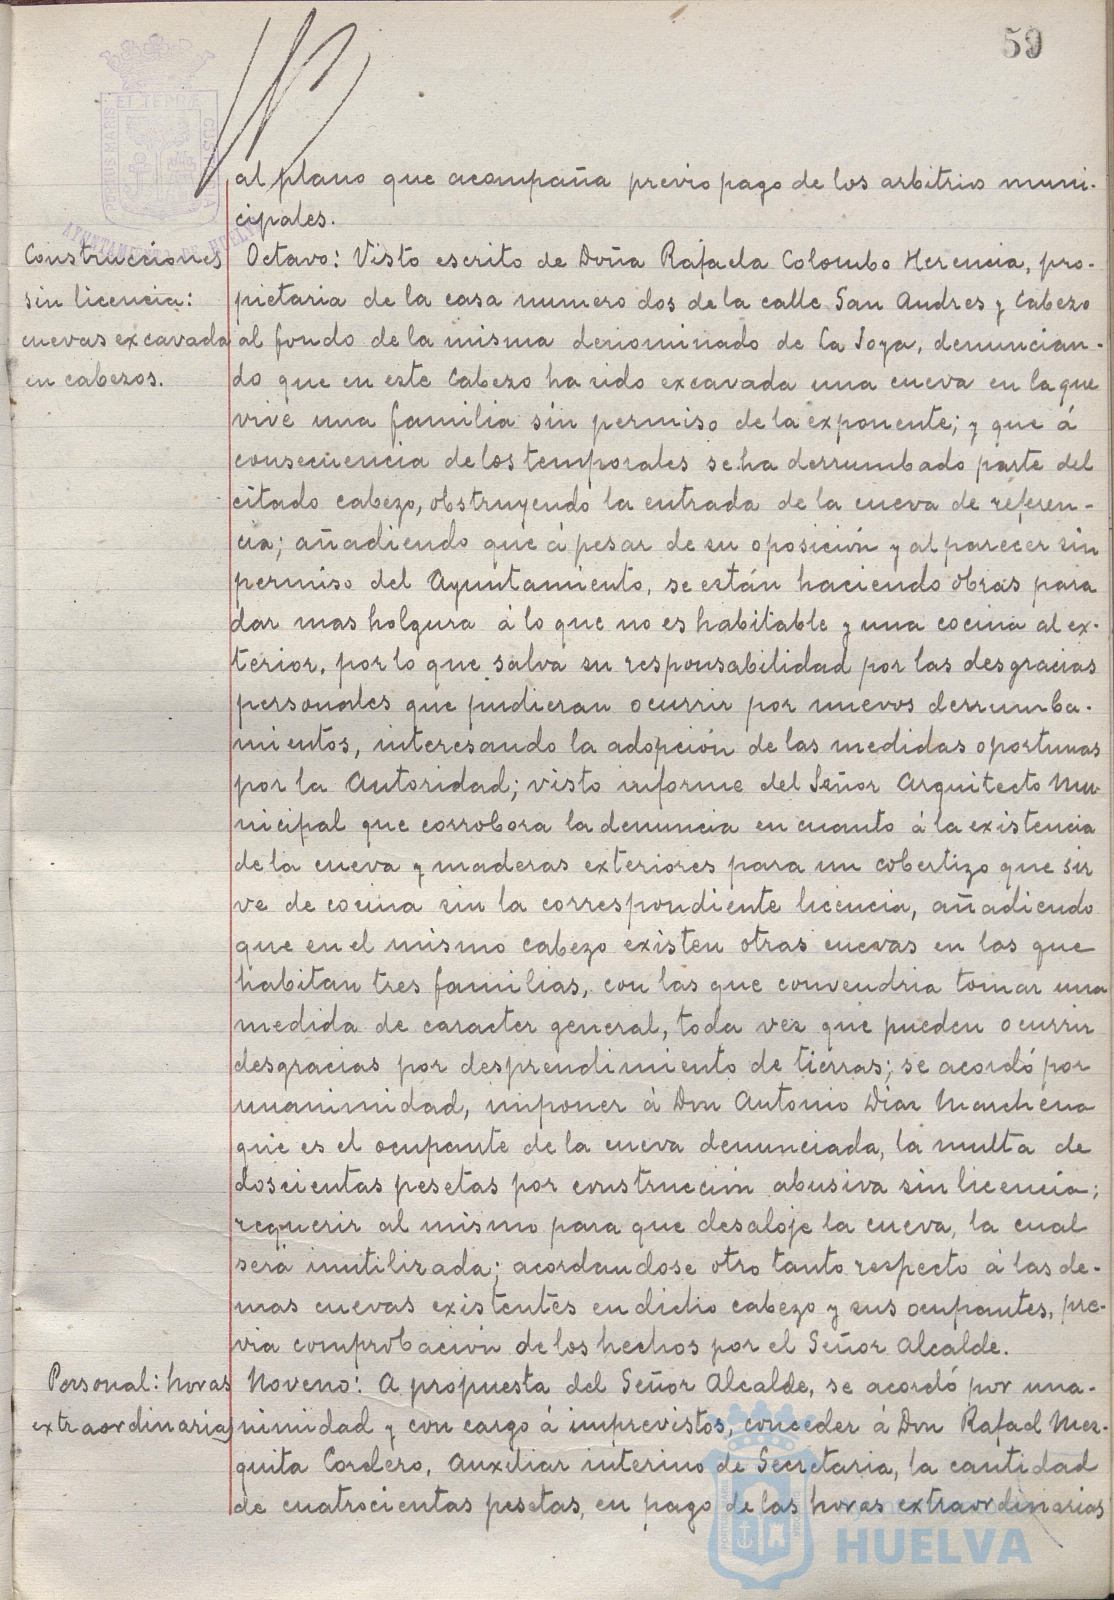 59
PORTUS MARIS ET TERRÆ CUSTODIA
AYUNTAMIENTO DE HUELVA
al plano que acompaña previo pago de los arbitrios muni-
cipales.
Construcciones
sin licencia:
cuevas excavada
en cabezos.
Octavo: Visto escrito de Doña Rafaela Colombo Herencia, pro-
pietaria de la casa numero dos de la calle San Andres y Cabezo
al fondo de la misma denominado de la Joya, denuncian-
do que en este Cabezo ha sido excavada una cueva en la que
vive una familia sin permiso de la exponente; y que á
consecuencia de los temporales se ha derrumbado parte del
citado cabezo, obstruyendo la entrada de la cueva de referen-
cia; añadiendo que á pesar de su oposición y al parecer sin
permiso del Ayuntamiento, se están haciendo obras para
dar mas holgura á lo que no es habitable y una cocina al ex-
terior, por lo que salva su responsabilidad por las desgracias
personales que pudieran ocurrir por nuevos derrumba-
mientos, interesando la adopción de las medidas oportunas
por la Autoridad; visto informe del Señor Arquitecto Mu-
nicipal que corrobora la denuncia en cuanto á la existencia
de la cueva y maderas exteriores para un cobertizo que sir
ve de cocina sin la correspondiente licencia, añadiendo
que en el mismo cabezo existen otras cuevas en las que
habitan tres familias, con las que convendria tomar una
medida de caracter general, toda vez que pueden ocurrir
desgracias por desprendimiento de tierras; se acordó por
unanimidad, imponer á Don Antonio Diaz Marchena
que es el ocupante de la cueva denunciada, la multa de
doscientas pesetas por construcción abusiva sin licencia;
requerir al mismo para que desaloje la cueva, la cual
será inutilizada; acordandose otro tanto respecto á las de-
mas cuevas existentes en dicho cabezo y sus ocupantes, pre-
via comprobación de los hechos por el Señor Alcalde.
Personal: horas
extraordinarias
Noveno: A propuesta del Señor Alcalde, se acordó por una-
nimidad y con cargo á imprevistos, conceder á Don Rafael Mez-
quita Cordero, Auxiliar interino de Secretaria, la cantidad
de cuatrocientas pesetas, en pago de las horas extraordinarias
HUELVA